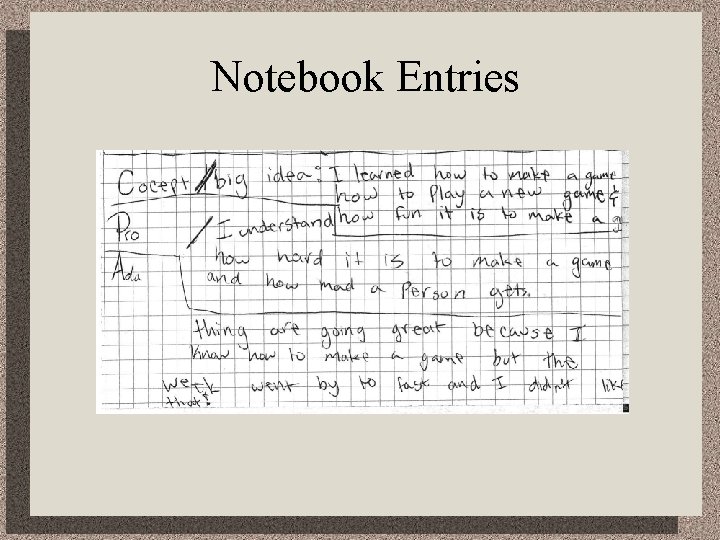 Notebook Entries
Cocept/big idea: I learned how to make a game
how to Play a new game &
how fun it is to make a g
Pro / I understand
how hard it is to make a game
Adu and how mad a Person gets.
thing are going great because I
know how to make a game but the
week went by to fast and I didn't like
that!